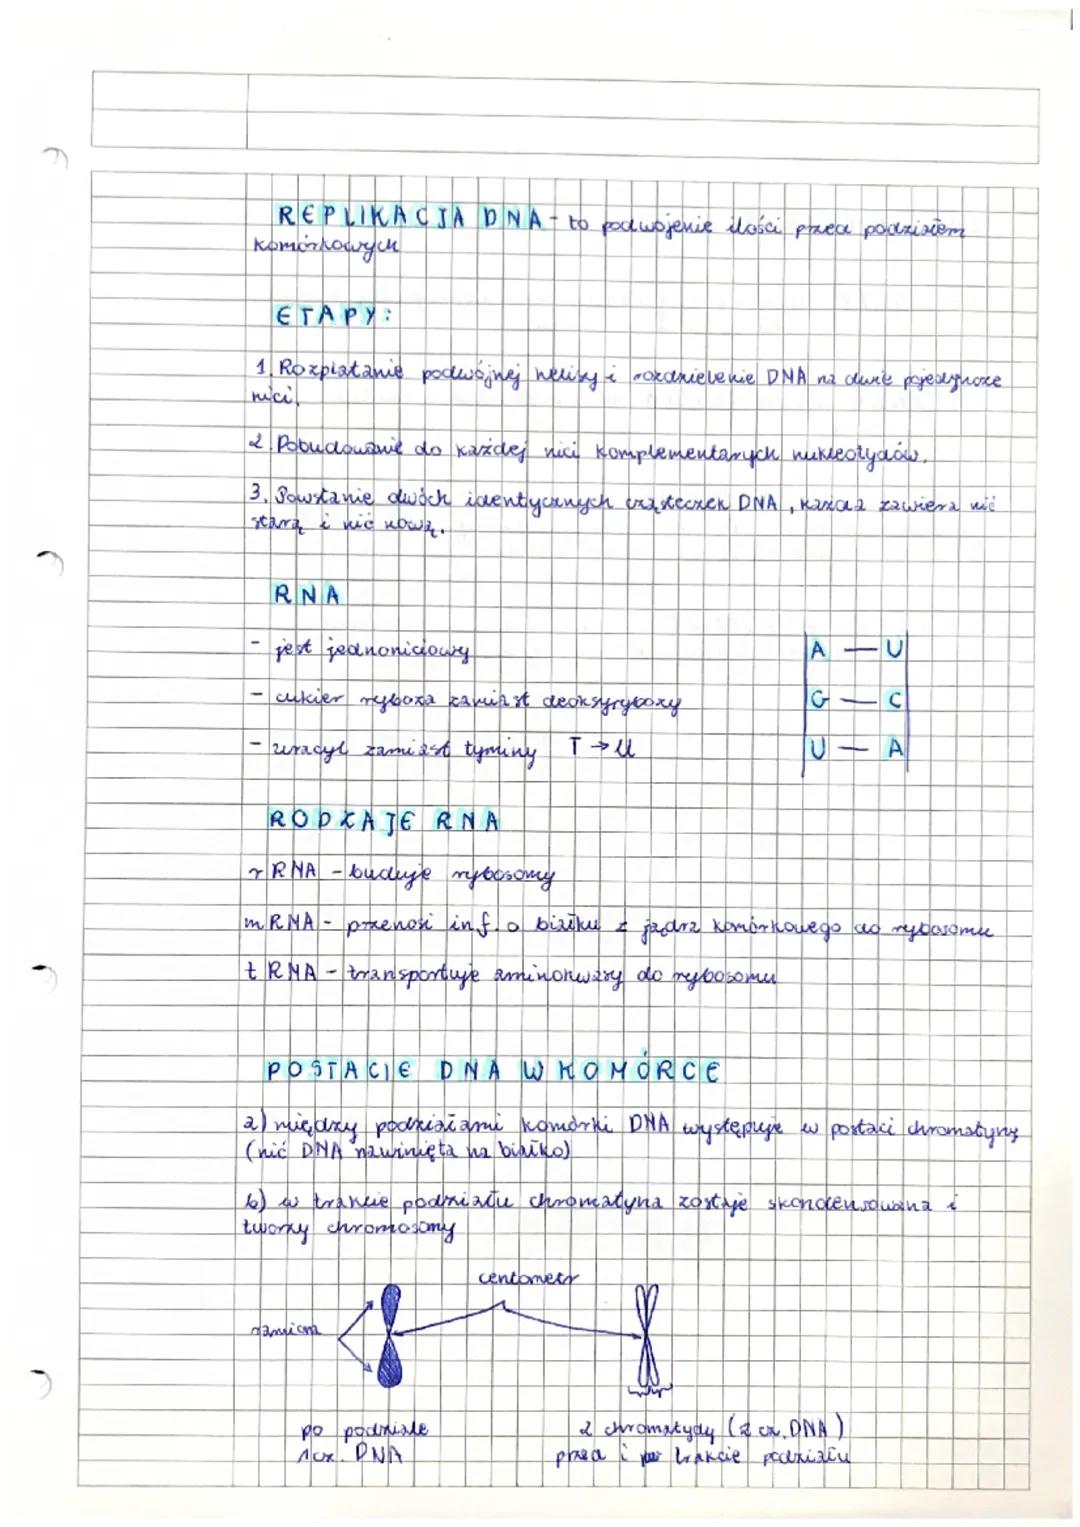 REPLIKACJA DNA - to podwojenie ilości przed podziałem
komórkowych
ETAPY:
1. Rozplatanie podwójnej helisy i rozdzielenie DNA na dwie pojedyncze
nici.
2. Dobudowanie do każdej nici komplementarych nukleotydów.
3. Powstanie dwóch identycznych cząsteczek DNA, każda zawiera nić
starą i nić nową.
RNA
- jest jednoniciowy
- cukier ryboza zamiast deoksyrybozy
- uracyl zamiast tyminy T → U
A — U
G — C
U — A
RODZAJE RNA
rRNA - buduje rybosomy
mRNA - przenosi inf. o białku z jądra komórkowego do rybosomu
tRNA - transportuje aminokwasy do rybosomu
POSTACIE DNA W KOMÓRCE
a) między podziałami komórki DNA występuje w postaci chromatyny
(nić DNA nawinięta na białko)
b) w trakcie podziału chromatyna zostaje skondensowana i
tworzy chromosomy
centometr
ramiona
po podziale
1 cz. DNA
2 chromatydy (2 cz. DNA)
przed i w trakcie podziału